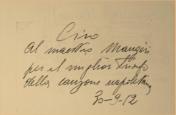 Ciro
Al maestro Mangini
per il miglior
della canzone napoletana
30-9-12